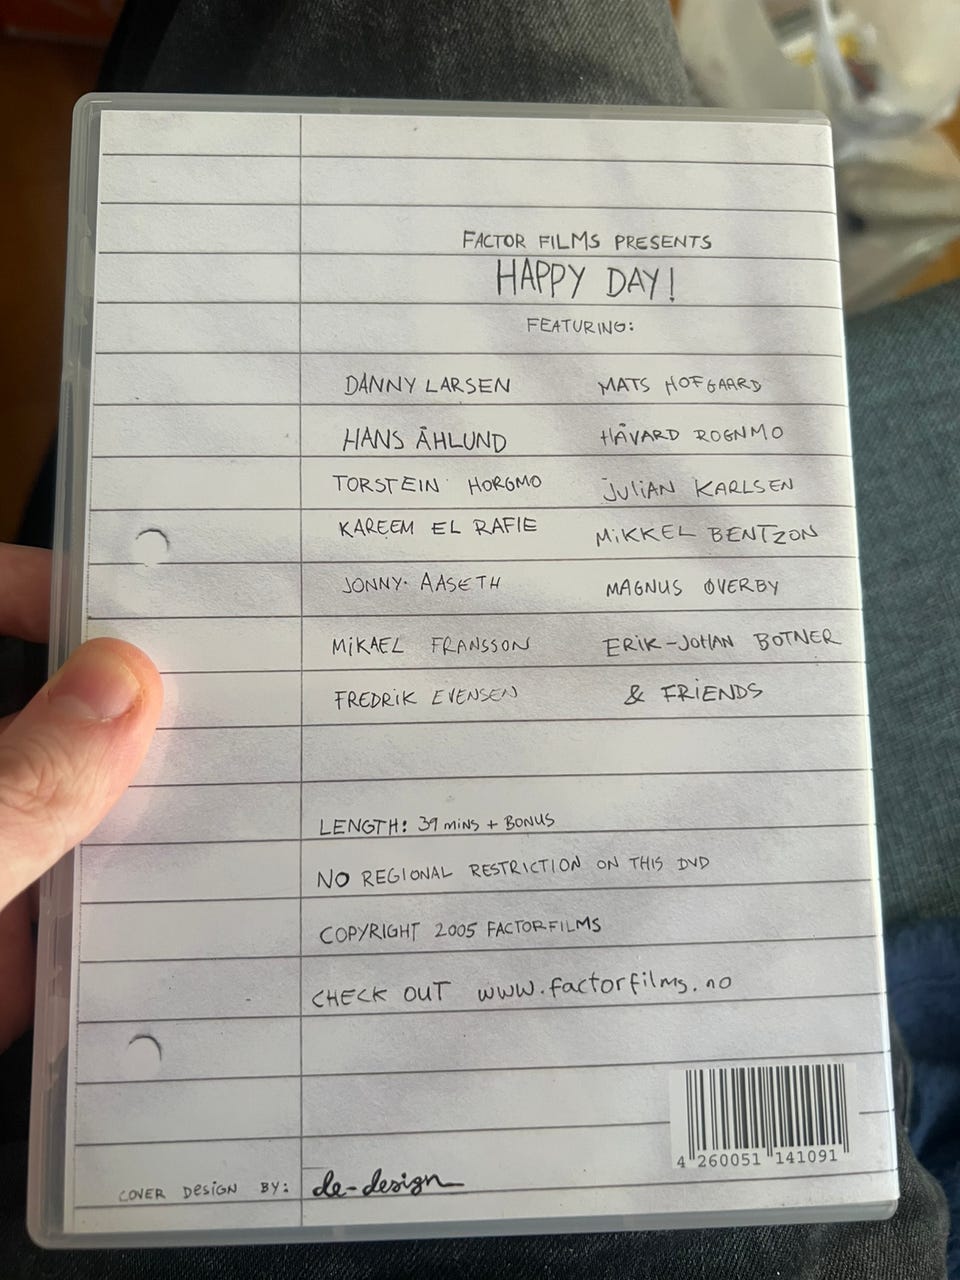 FACTOR FILMS PRESENTS
HAPPY DAY!
FEATURING:
DANNY LARSEN
HANS ÅHLUND
TORSTEIN HORGMO
KAREEM EL RAFIE
JONNY AASETH
MIKAEL FRANSSON
FREDRIK EVENSEN
MATS HOFGAARD
HÅVARD ROGNMO
JULIAN KARLSEN
MIKKEL BENTZON
MAGNUS ØVERBY
ERIK-JOHAN BOTNER
& FRIENDS
LENGTH: 39 MINS + BONUS
NO REGIONAL RESTRICTION ON THIS DVD
COPYRIGHT 2005 FACTORFILMS
CHECK OUT www.factorfilms.no
4 260051 141091
COVER DESIGN BY: de-design